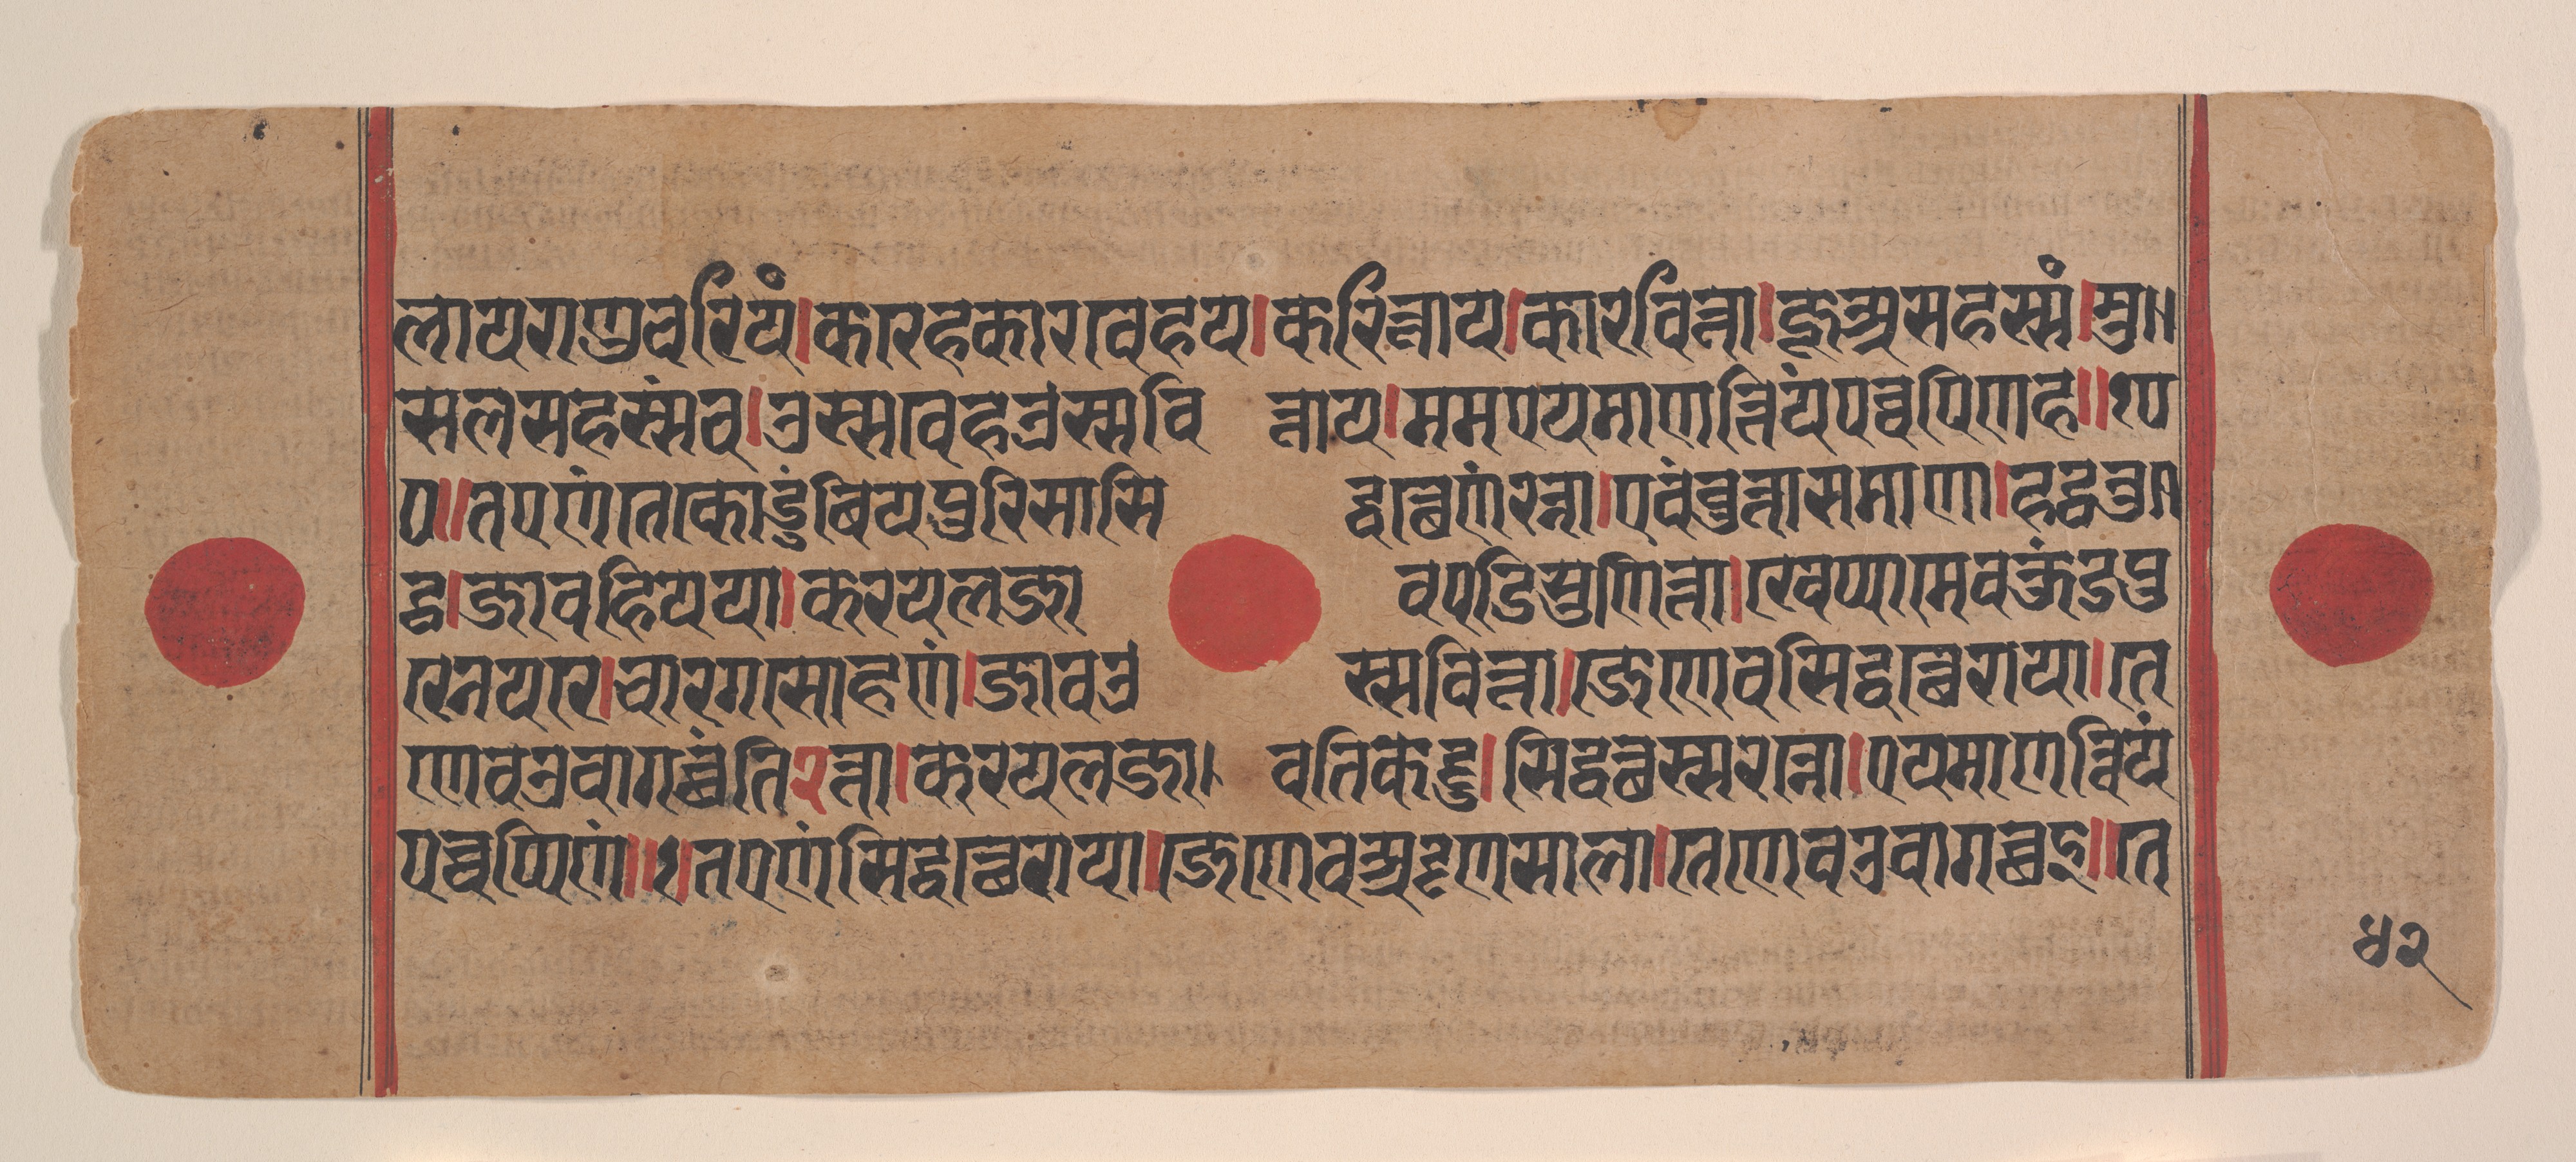 लायराणुचरियं।कारेहकारावेहय।करित्ताय।कारवित्ता।जूअसहस्सं।मु॥
सलसहस्संच।उस्सावेहउस्सवि त्ताय।ममएयमाणत्तियंपच्चपिणह॥१ए
ए॥तएणंतेकोडुंबियपुरिसासि द्धत्थेणंरन्ना।एवंवुत्तासमाणा।हट्ठतु॥
ट्ठ।जावहियया।करयलजा वपडिसुणित्ता।खिप्पामेवकुंडपु
रेनयरे।चारगसोहणं।जावउ स्सवित्ता।जेणेवसिद्धत्थेराया।ते
णेवउवागच्छंति२त्ता।करयलजा। वतिकट्टु।सिद्धत्थस्सरन्नो।एयमाणत्तियं
पच्चप्पिणं॥२।तएणंसिद्धत्थेराया।जेणेवअट्टणसाला।तेणेवउवागच्छइ॥ते
५२